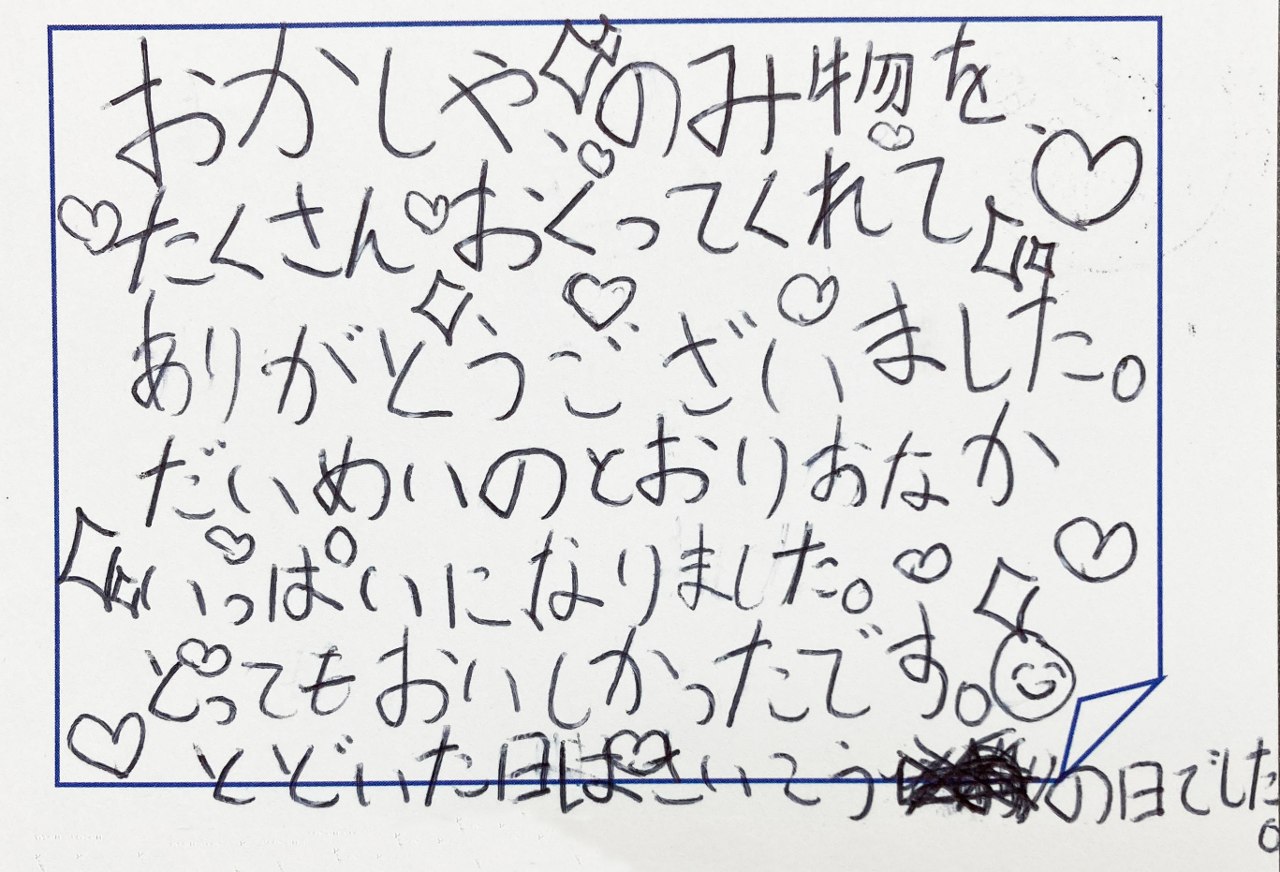 おかしや、のみ物を、
たくさんおくってくれて、
ありがとうございました。
だいめいのとおりおなか
いっぱいになりました。
とってもおいしかったです。
とどいた日はさいこうの日でした。